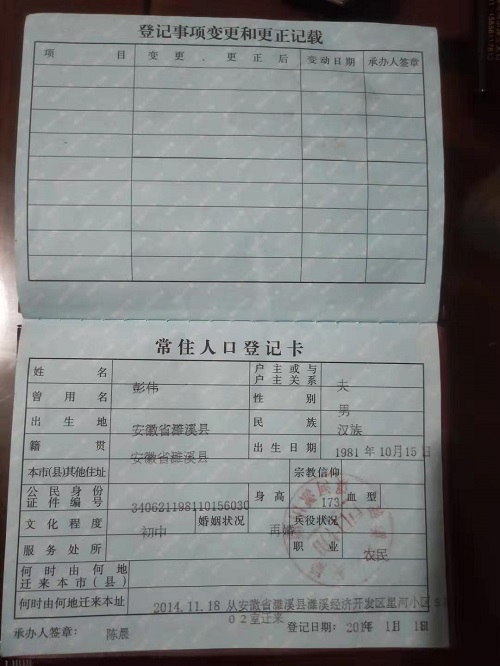 登记事项变更和更正记载
项 目 变 更 、 更 正 后 变动日期 承办人签章
常住人口登记卡
姓 名 彭伟 户主或与户主关系 夫
曾 用 名 性 别 男
出 生 地 安徽省濉溪县 民 族 汉族
籍 贯 安徽省濉溪县 出生日期 1981年10月15日
本市(县)其他住址 宗教信仰
公民身份证件编号 340621198110156030 身高 173 血型
文化程度 初中 婚姻状况 再婚 兵役状况
服务处所 职 业 农民
何时由何地迁来本市(县)
何时由何地迁来本址 2014.11.18 从安徽省濉溪县濉溪经济开发区星河小区
02室迁来
承办人签章: 陈晨 登记日期: 1月1日